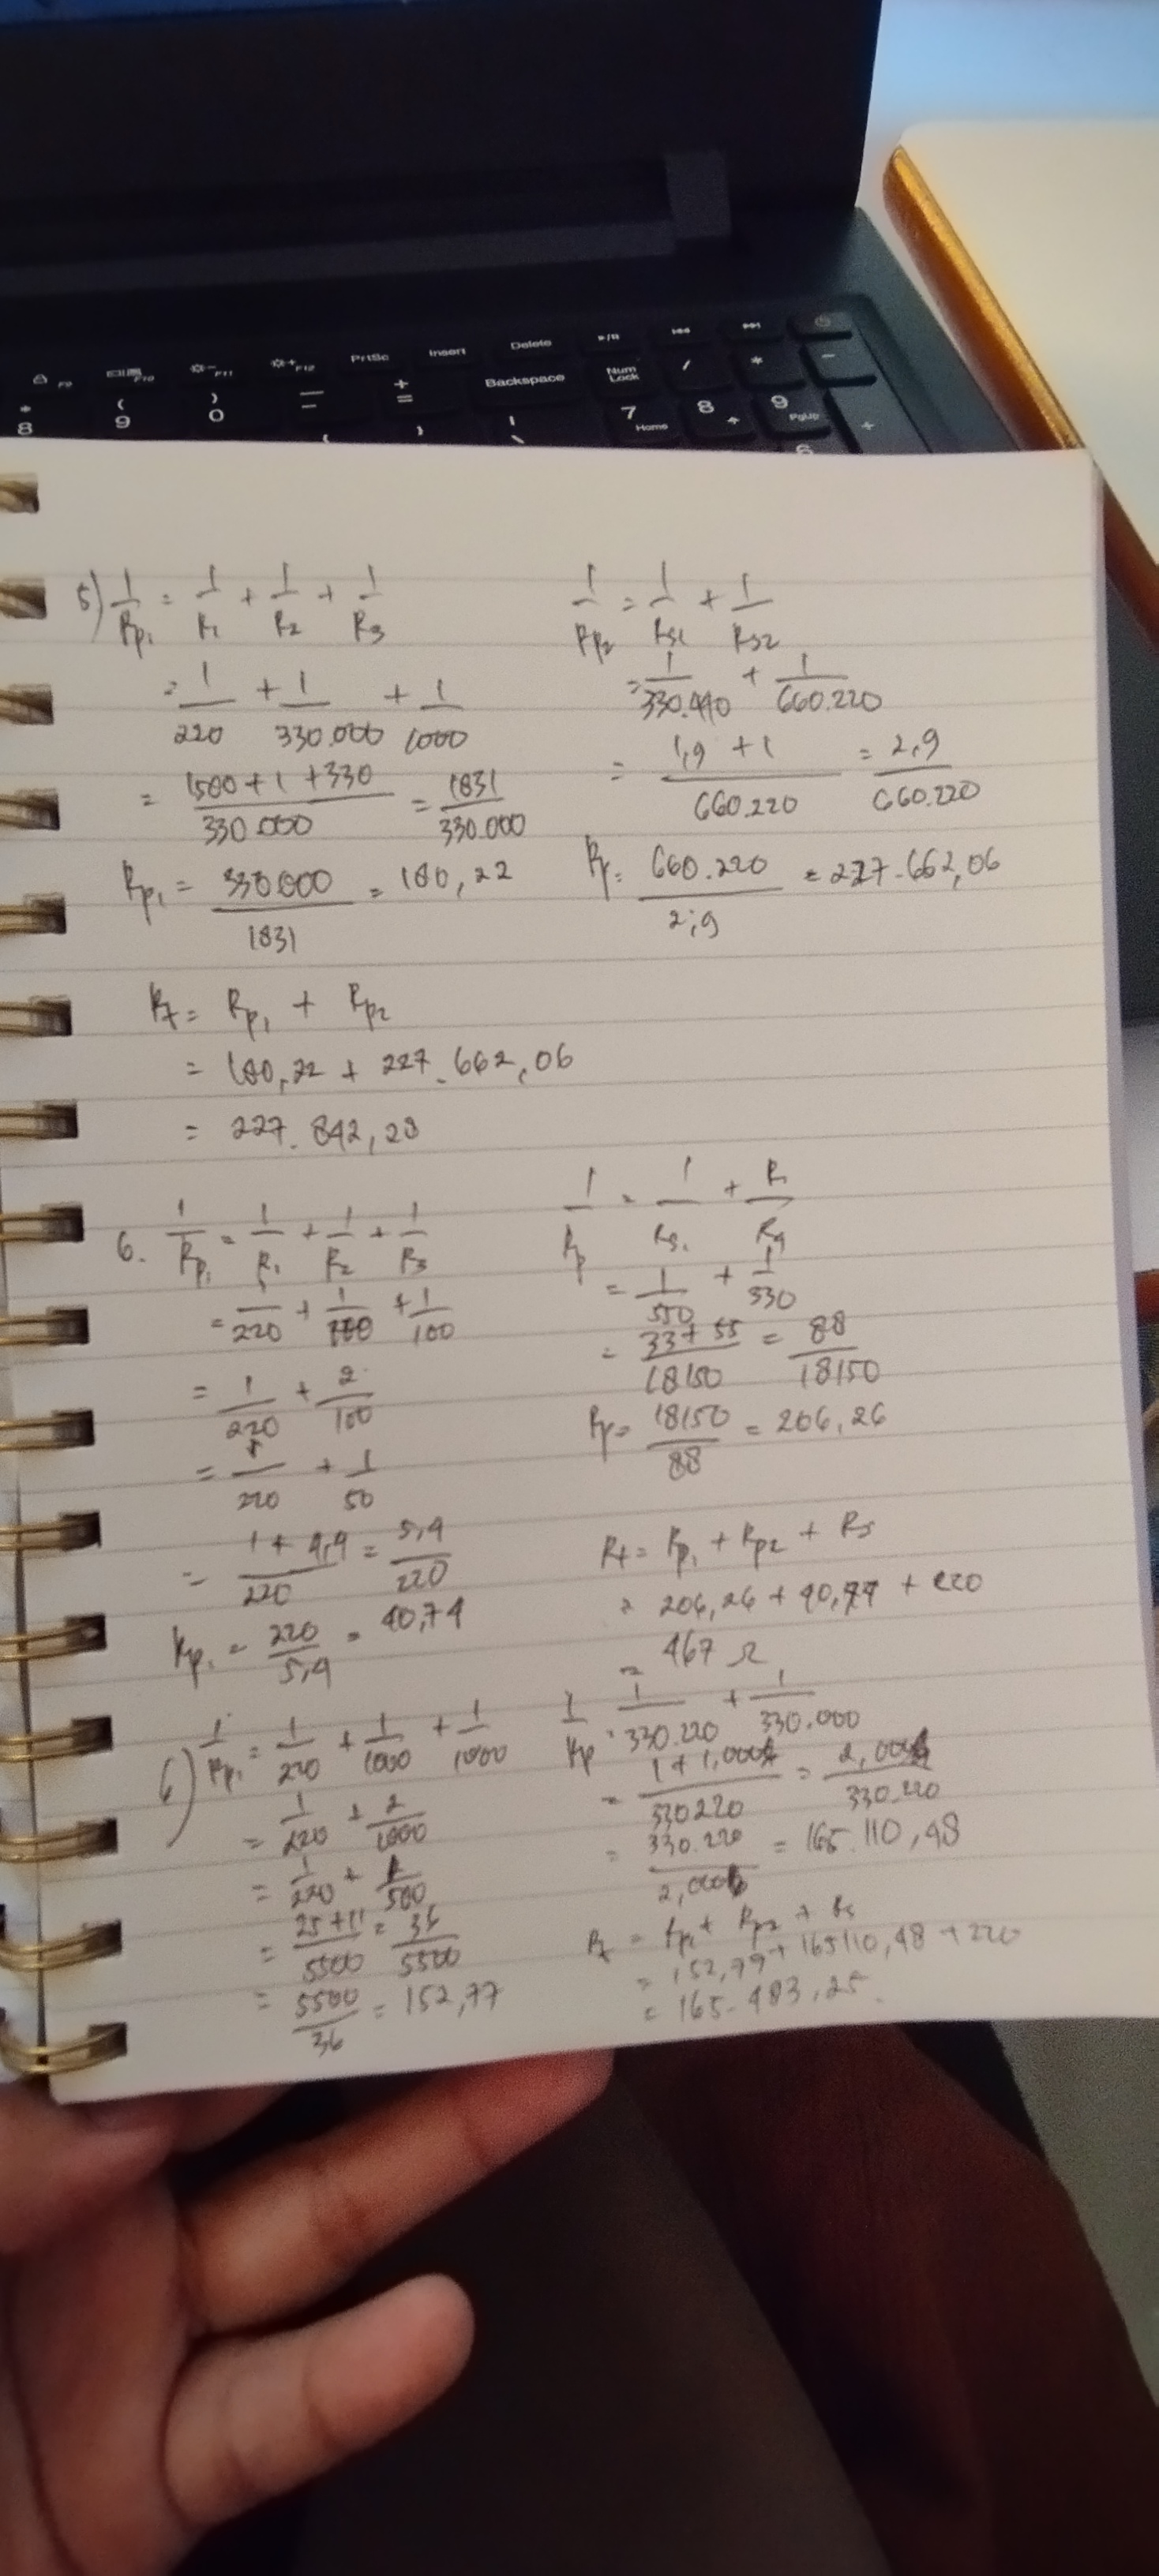 F9 F10 F11 F12 PrtSc Insert Delete
* 8 ( 9 ) 0 — - + = Backspace Num Lock / * -
7 Home 8 9 PgUp +
6
5) 1/Rp1 = 1/R1 + 1/R2 + 1/R3
= 1/220 + 1/330.000 + 1/1000
= 1500 + 1 + 330 / 330.000 = 1831/330.000
Rp1 = 330.000/1831 = 180,22
1/Rp2 = 1/Rs1 + 1/Rs2
= 1/330.440 + 1/660.220
= 1,9 + 1 / 660.220 = 2,9/660.220
Rp = 660.220/2,9 = 227.662,06
Rt = Rp1 + Rp2
= 180,22 + 227.662,06
= 227.842,28
6. 1/Rp1 = 1/R1 + 1/R2 + 1/R3
= 1/220 + 1/100 + 1/100
= 1/220 + 2/100
= 1/220 + 1/50
= 1 + 4,4 / 220 = 5,4/220
Rp1 = 220/5,4 = 40,74
1/Rp = 1/Rs1 + R/R4
= 1/550 + 1/330
= 33 + 55 / 18150 = 88/18150
Rp = 18150/88 = 206,26
Rt = Rp1 + Rp2 + Rs
= 206,26 + 40,74 + 220
= 467 Ω
6) 1/Rp1 = 1/220 + 1/1000 + 1/1000
= 1/220 + 2/1000
= 1/220 + 1/500
= 25 + 11 / 5500 = 36/5500
= 5500/36 = 152,77
1/Rp = 1/330.220 + 1/330.000
330.220
= 330.220 = 165.110,48
Rt = Rp1 + Rp2 + Rs
= 152,77 + 165110,48 + 220
= 165.483,25